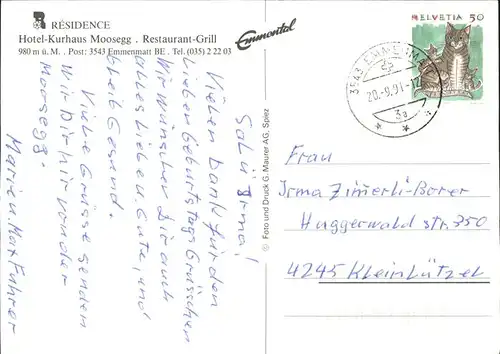 RÉSIDENCE
Hotel-Kurhaus Moosegg . Restaurant-Grill
980 m ü. M. . Post: 3543 Emmenmatt BE . Tel. (035) 2 22 03
Emmental
Salü Irma!
Vielen Dank für den
Lieben Geburtstags Grüsschen
Wir wünschen Dir auch
alles Lieben. Gute, und
bleib Gesund.
Viele Grüsse senden
wir Dir hir von der
Moosegg.
Marie u. Max Fuhrer
© Foto und Druck G. Maurer AG, Spiez
HELVETIA 50
3543 EMMENMA
20.-9.91-17
3a
Frau
Irma Zimerli-Borer
Huggerwald str. 350
4245 Kleinlützel